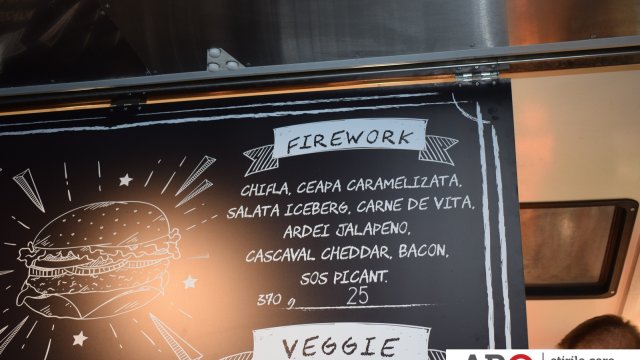 FIREWORK
CHIFLA, CEAPA CARAMELIZATA,
SALATA ICEBERG, CARNE DE VITA,
ARDEI JALAPENO,
CASCAVAL CHEDDAR, BACON,
SOS PICANT.
370 g 25
VEGGIE